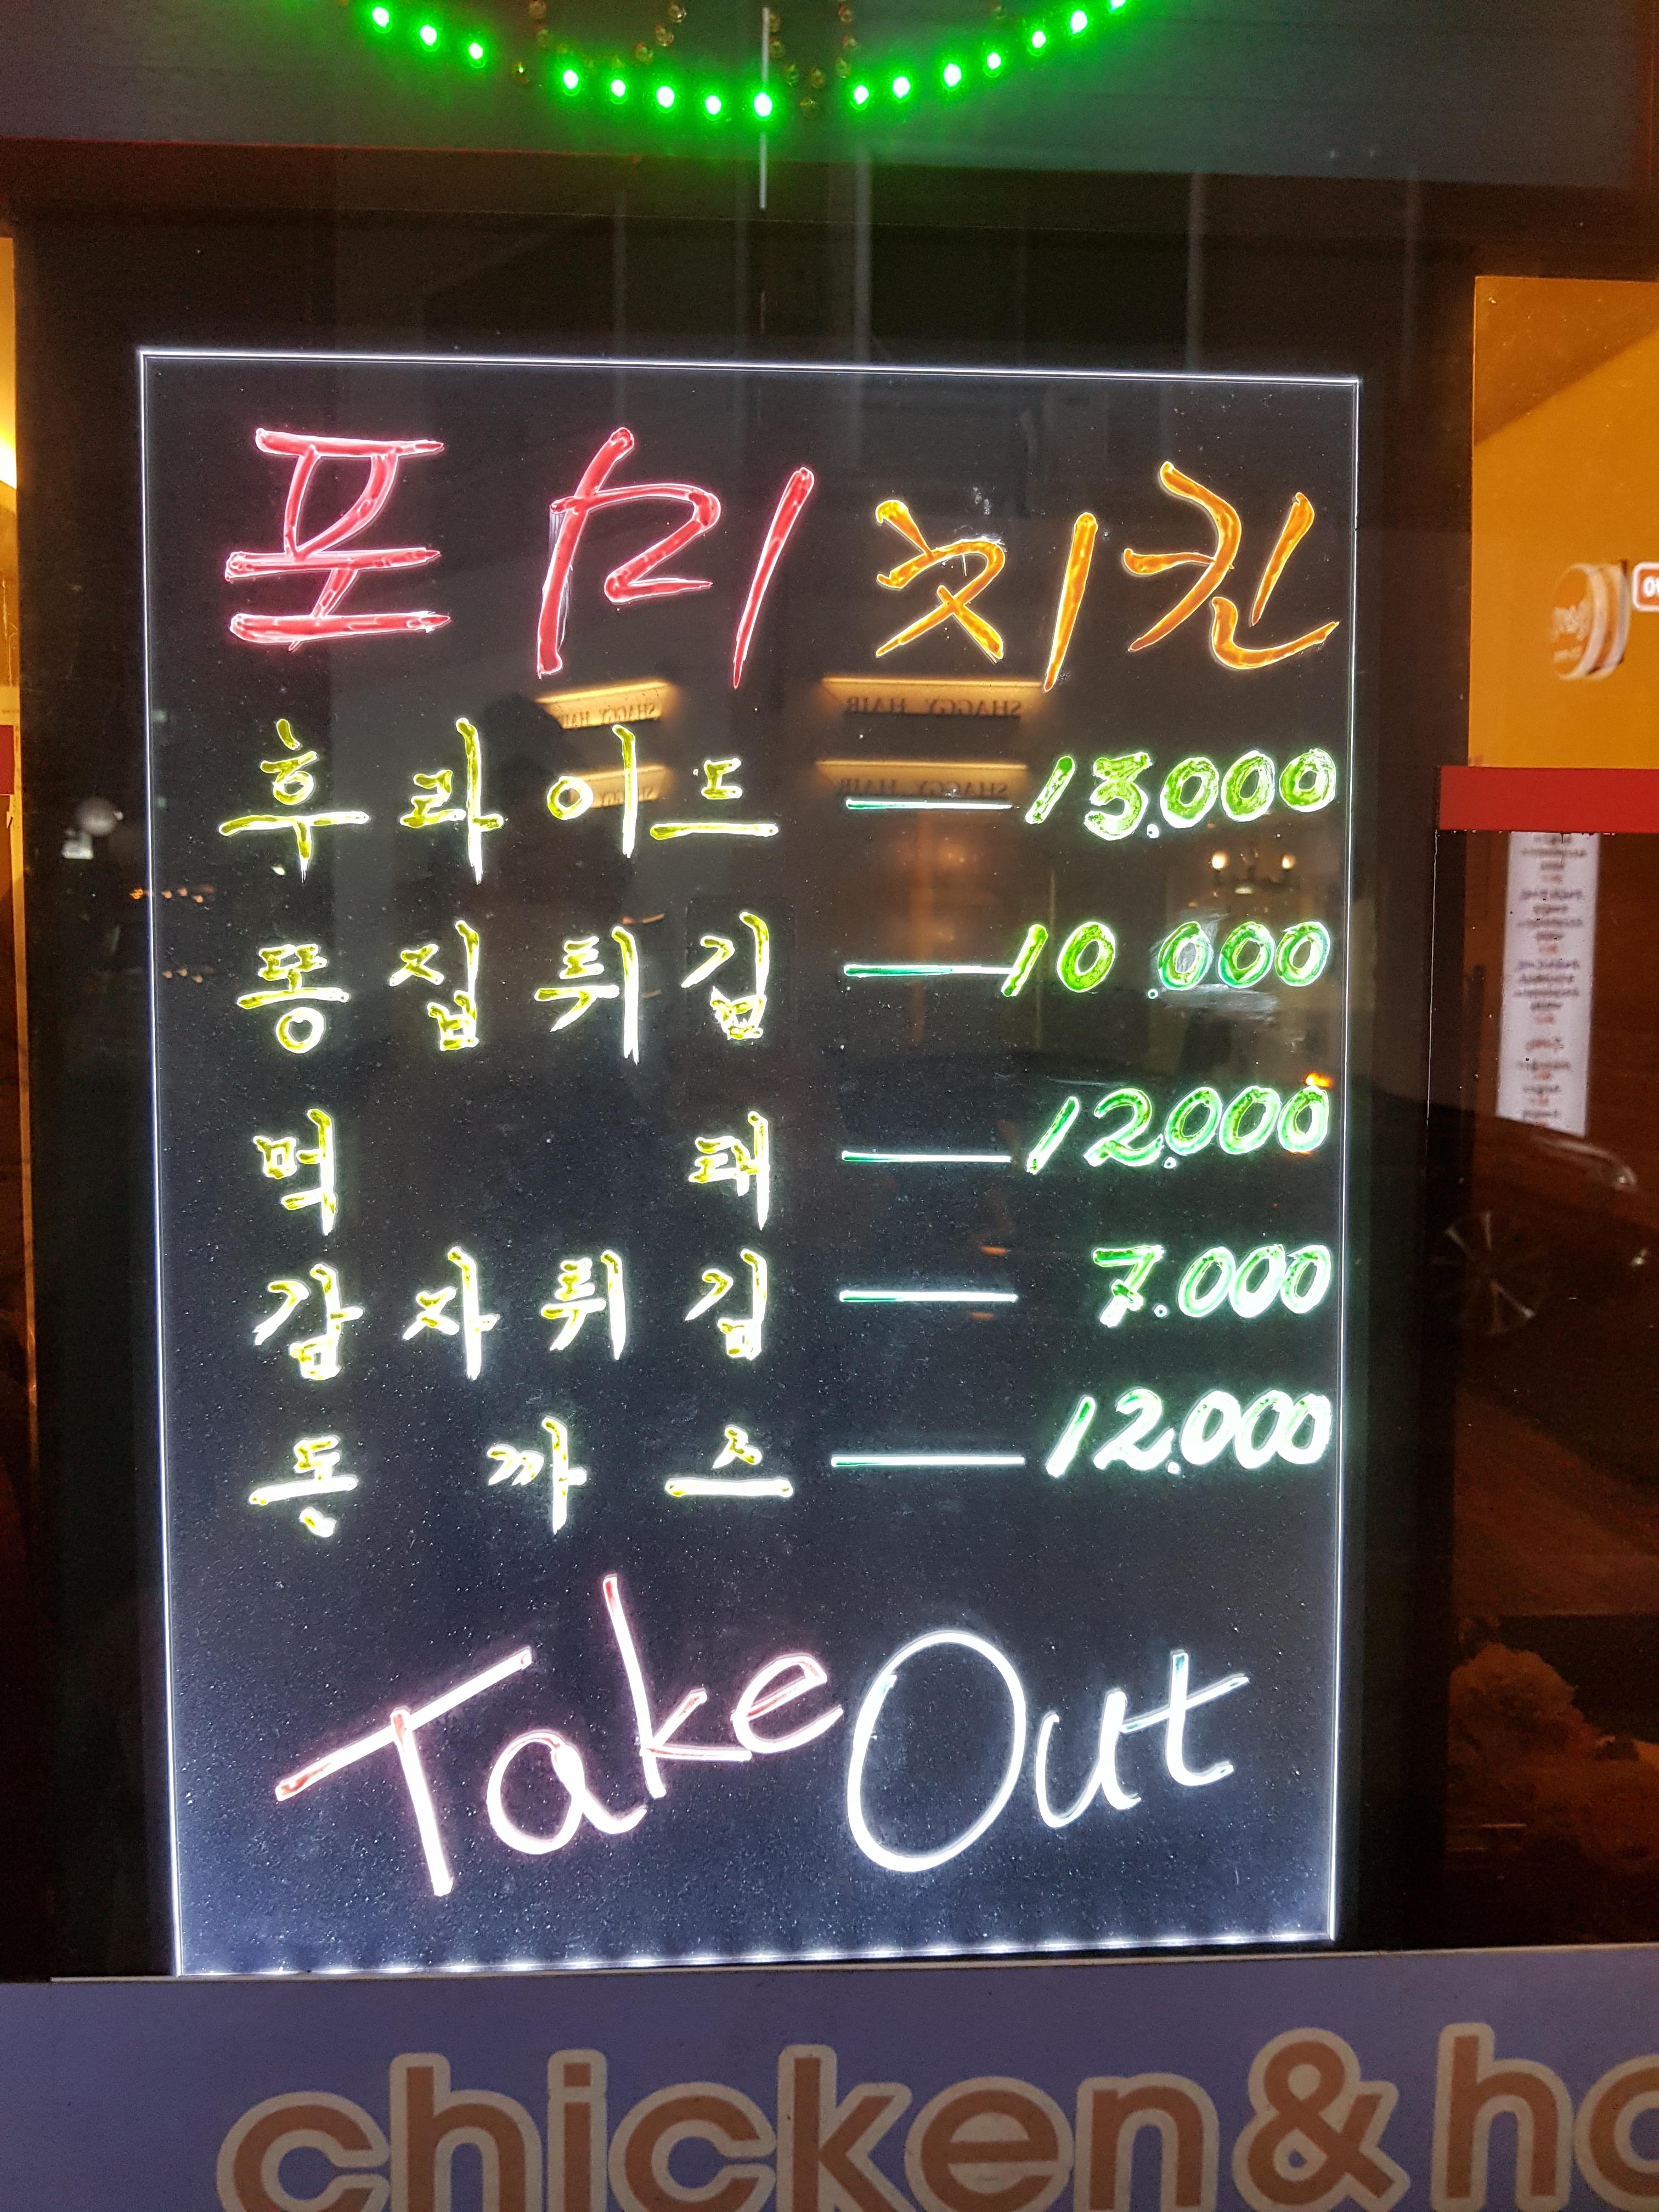 포리치킨
후라이드 — 13.000
똥집튀김 — 10.000
먹태 — 12.000
감자튀김 — 7.000
돈까스 — 12.000
Take Out
chicken & ho